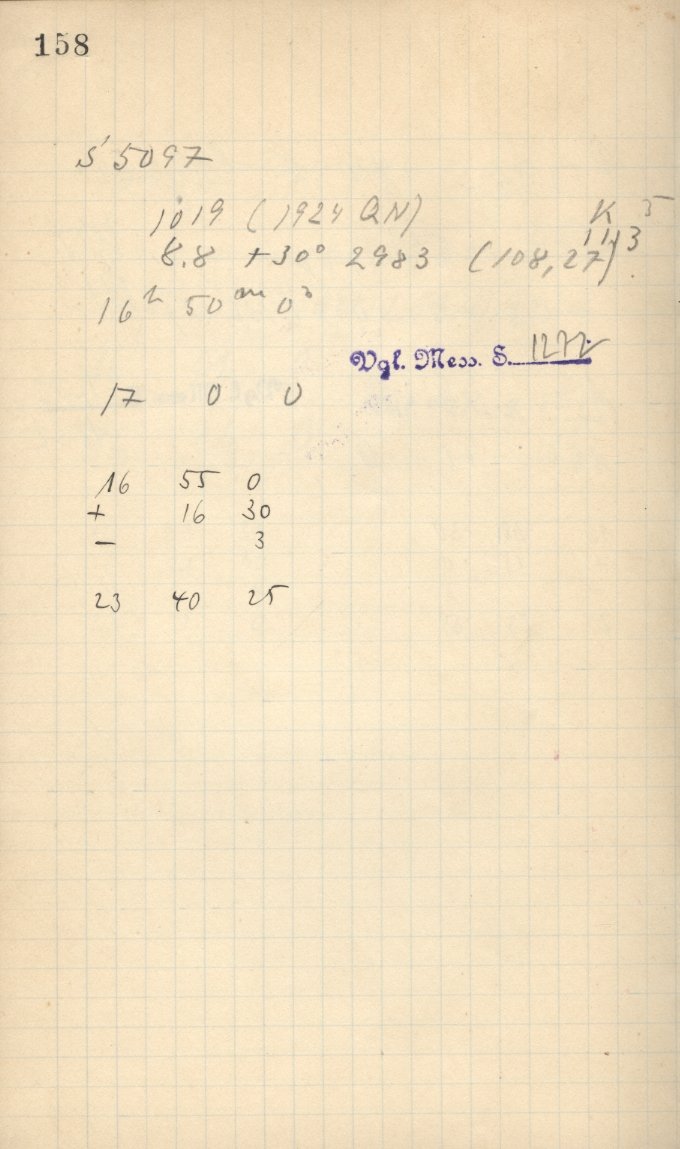 158
S 5097
1019 (1924 QN) K 5
8.8 +30° 2983 (108,27) 1113
16h 50m 0s
Vgl. Mess. S. 1272
17 0 0
16 55 0
+ 16 30
- 3
23 40 25